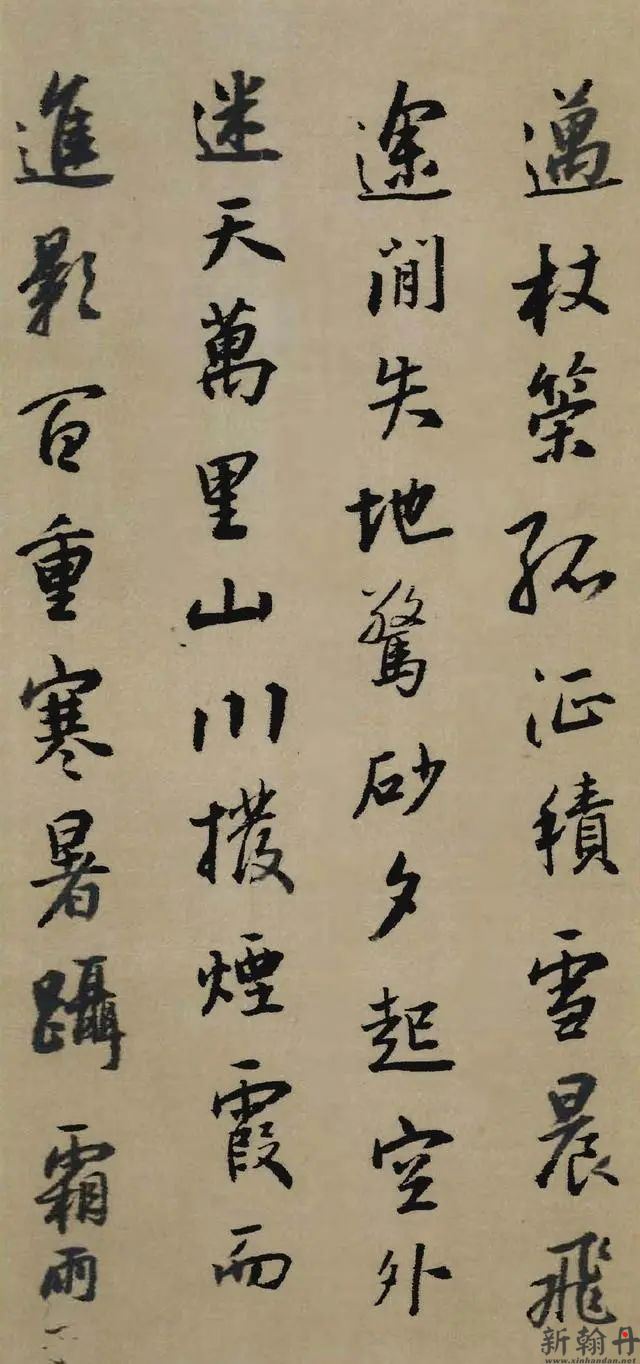 邁杖策孤征積雪晨飛
途閒失地驚砂夕起空外
迷天萬里山川撥煙霞而
進影百重寒暑躡霜雨
新翰丹
www.xinhandan.net